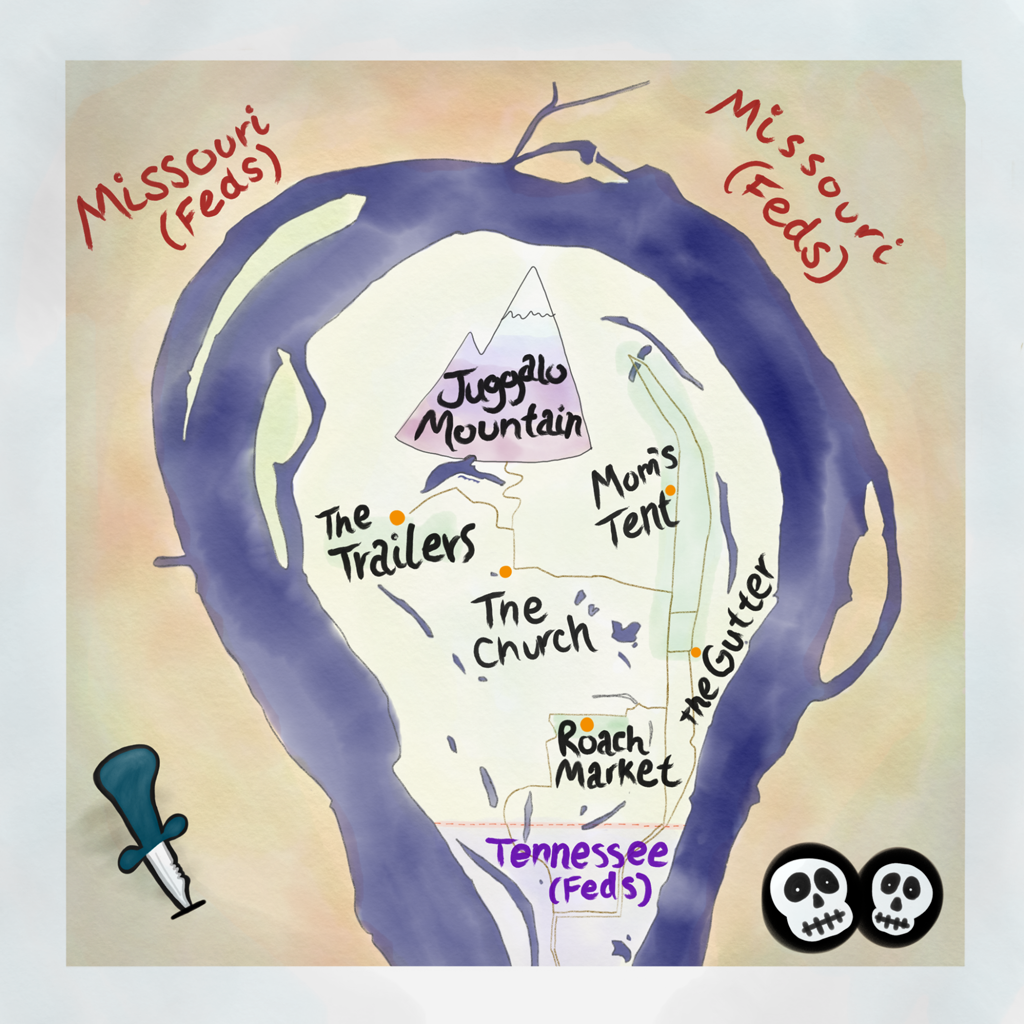 Missouri
(Feds)
Missouri
(Feds)
Juggalo
Mountain
Mom's
Tent
The
Trailers
The
Church
the Gutter
Roach
Market
Tennessee
(Feds)